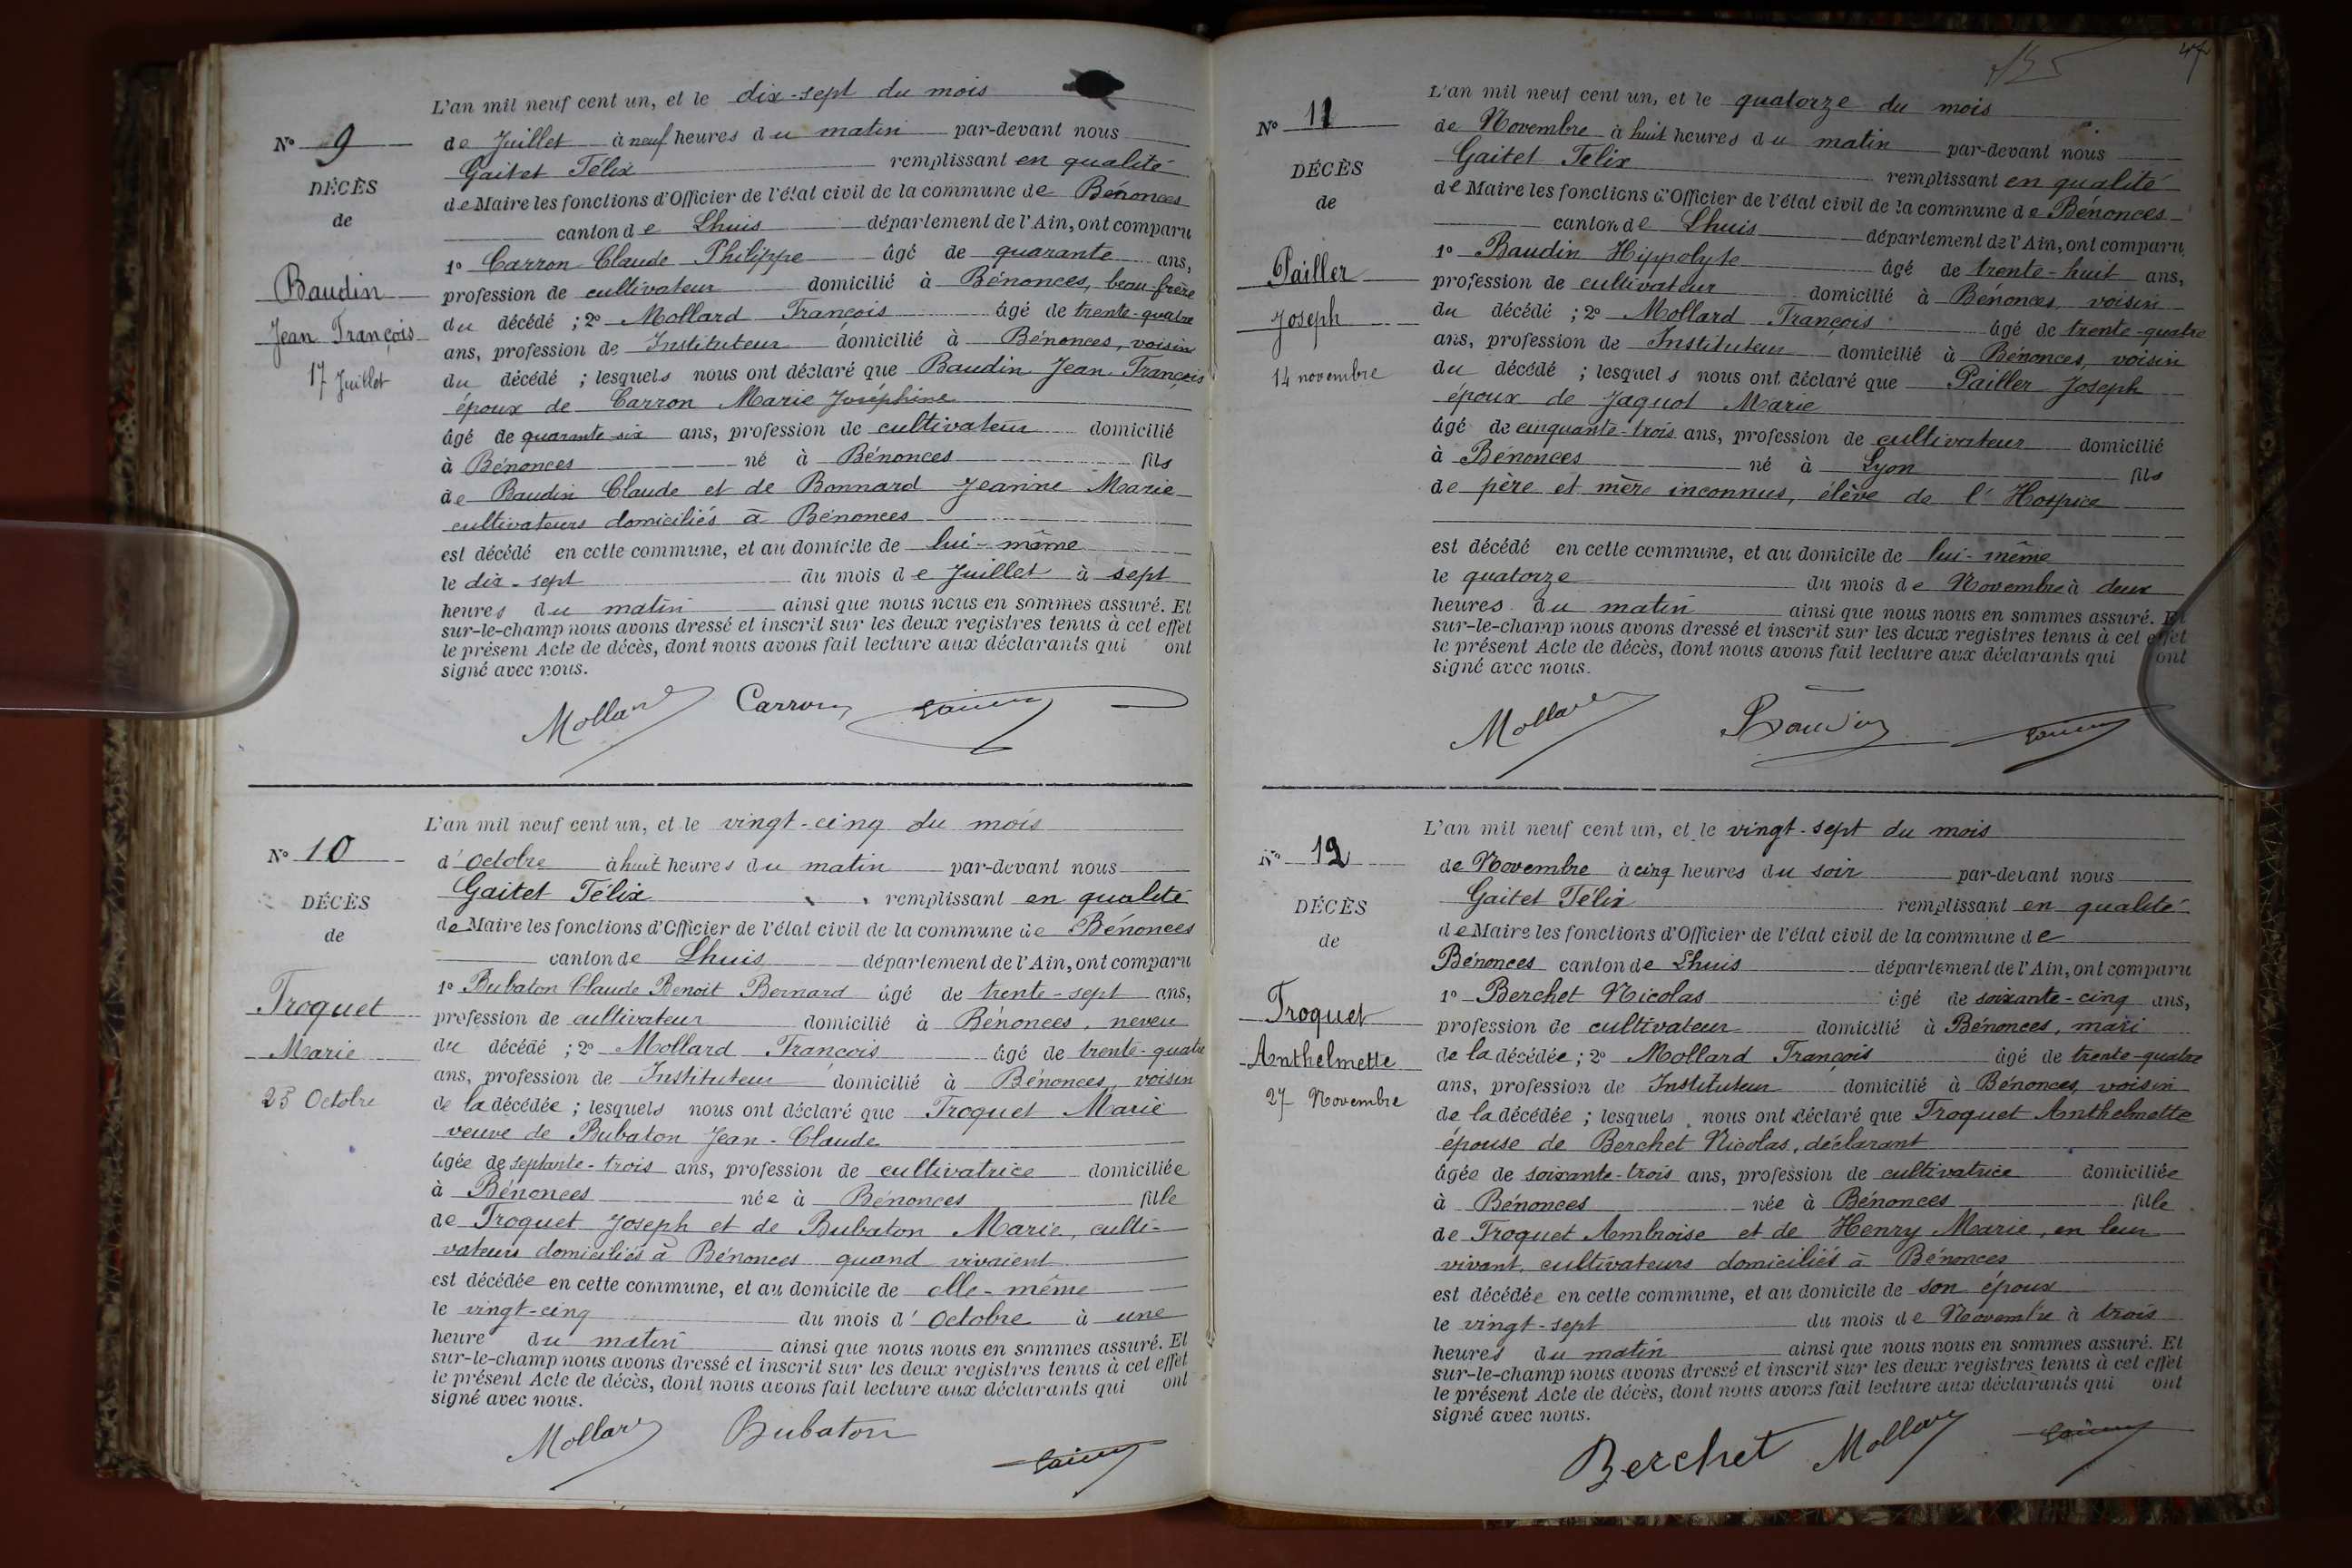 L'an mil neuf cent un, et le dix-sept du mois
No 9
de Juillet à neuf heures du matin par-devant nous
Gaitet Félix remplissant en qualité
DÉCÈS
de Maire les fonctions d'Officier de l'état civil de la commune de Bénonces
de
canton de Lhuis département de l'Ain, ont comparu
1o Carron Claude Philippe âgé de quarante ans,
Baudin
profession de cultivateur domicilié à Bénonces, beau-frère
du décédé ; 2o Mollard François âgé de trente-quatre
Jean François
ans, profession de Instituteur domicilié à Bénonces, voisin
17 Juillet
du décédé ; lesquels nous ont déclaré que Baudin Jean François
époux de Carron Marie Joséphine
âgé de quarante six ans, profession de cultivateur domicilié
à Bénonces né à Bénonces fils
de Baudin Claude et de Bonnard Jeanine Marie
cultivateurs domiciliés à Bénonces
est décédé en cette commune, et au domicile de lui-même
le dix-sept du mois de Juillet à sept
heures du matin ainsi que nous nous en sommes assuré. Et
sur-le-champ nous avons dressé et inscrit sur les deux registres tenus à cet effet
le présent Acte de décès, dont nous avons fait lecture aux déclarants qui ont
signé avec nous.
Mollard Carron
L'an mil neuf cent un, et le vingt-cinq du mois
No 10
d'Octobre à huit heures du matin par-devant nous
Gaitet Félix remplissant en qualité
DÉCÈS
de Maire les fonctions d'Officier de l'état civil de la commune de Bénonces
de
canton de Lhuis département de l'Ain, ont comparu
1o Bubaton Claude Benoit Bernard âgé de trente-sept ans,
Troquet
profession de cultivateur domicilié à Bénonces, neveu
du décédé ; 2o Mollard François âgé de trente-quatre
Marie
ans, profession de Instituteur domicilié à Bénonces, voisin
25 Octobre
de la décédée ; lesquels nous ont déclaré que Troquet Marie
veuve de Bubaton Jean-Claude
âgée de septante-trois ans, profession de cultivatrice domiciliée
à Bénonces née à Bénonces fille
de Troquet Joseph et de Bubaton Marie, culti-
vateurs domiciliés à Bénonces quand vivaient
est décédée en cette commune, et au domicile de elle-même
le vingt-cinq du mois d'Octobre à une
heure du matin ainsi que nous nous en sommes assuré. Et
sur-le-champ nous avons dressé et inscrit sur les deux registres tenus à cet effet
le présent Acte de décès, dont nous avons fait lecture aux déclarants qui ont
signé avec nous.
Mollard Bubaton
47
L'an mil neuf cent un, et le quatorze du mois
No 11
de Novembre à huit heures du matin par-devant nous
Gaitet Félix remplissant en qualité
DÉCÈS
de Maire les fonctions d'Officier de l'état civil de la commune de Bénonces
de
canton de Lhuis département de l'Ain, ont comparu
1o Baudin Hippolyte âgé de trente-huit ans,
Pailler
profession de cultivateur domicilié à Bénonces, voisin
du décédé ; 2o Mollard François âgé de trente-quatre
Joseph
ans, profession de Instituteur domicilié à Bénonces, voisin
14 novembre
du décédé ; lesquels nous ont déclaré que Pailler Joseph
époux de Jaquot Marie
âgé de cinquante-trois ans, profession de cultivateur domicilié
à Bénonces né à Lyon fils
de père et mère inconnus, élève de l'Hospice
est décédé en cette commune, et au domicile de lui-même
le quatorze du mois de Novembre à deux
heures du matin ainsi que nous nous en sommes assuré. Et
sur-le-champ nous avons dressé et inscrit sur les deux registres tenus à cet effet
le présent Acte de décès, dont nous avons fait lecture aux déclarants qui ont
signé avec nous.
Mollard Baudin
L'an mil neuf cent un, et le vingt-sept du mois
No 12
de Novembre à cinq heures du soir par-devant nous
Gaitet Félix remplissant en qualité
DÉCÈS
de Maire les fonctions d'Officier de l'état civil de la commune de
de
Bénonces canton de Lhuis département de l'Ain, ont comparu
1o Berchet Nicolas âgé de soixante-cinq ans,
Troquet
profession de cultivateur domicilié à Bénonces, mari
de la décédée ; 2o Mollard François âgé de trente-quatre
Anthelmette
ans, profession de Instituteur domicilié à Bénonces, voisin
27 Novembre
de la décédée ; lesquels nous ont déclaré que Troquet Anthelmette
épouse de Berchet Nicolas, déclarant
âgée de soixante-trois ans, profession de cultivatrice domiciliée
à Bénonces née à Bénonces fille
de Troquet Ambroise et de Henry Marie, en leur
vivant, cultivateurs domiciliés à Bénonces
est décédée en cette commune, et au domicile de son époux
le vingt-sept du mois de Novembre à trois
heures du matin ainsi que nous nous en sommes assuré. Et
sur-le-champ nous avons dressé et inscrit sur les deux registres tenus à cet effet
le présent Acte de décès, dont nous avons fait lecture aux déclarants qui ont
signé avec nous.
Berchet Mollard